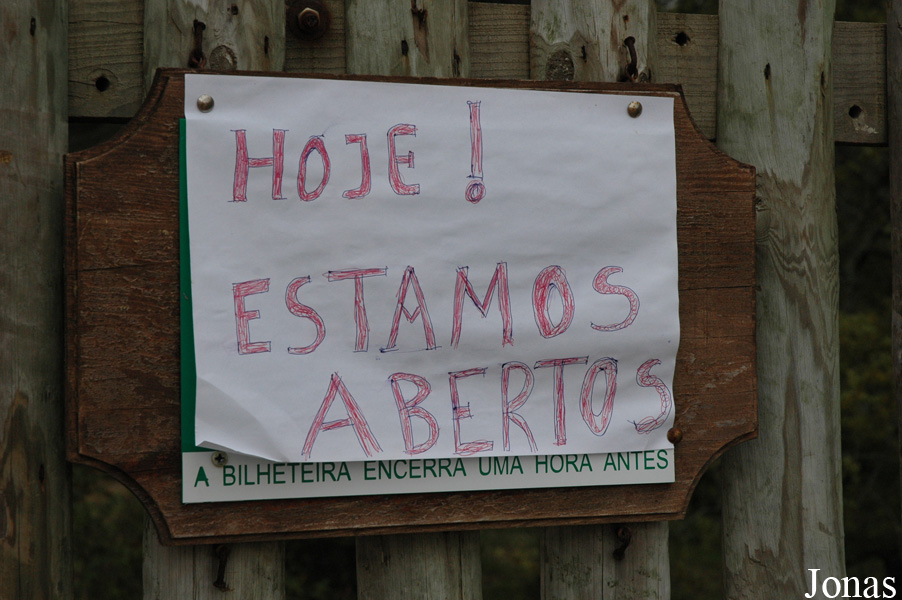 HOJE!
ESTAMOS
ABERTOS
A BILHETEIRA ENCERRA UMA HORA ANTES
Jonas